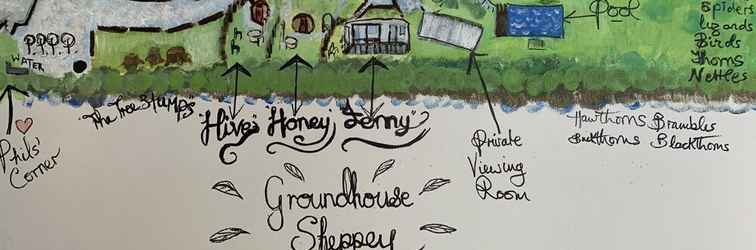 Pool
Spiders
lizards
Birds
Thorns
Nettles
WATER
Phils'
Corner
"The Tree Stumps"
"Hive"
"Honey"
"Jenny"
Private
Viewing
Room
Hawthorns Brambles
Buckthorns Blackthorns
Groundhouse
Sheppey